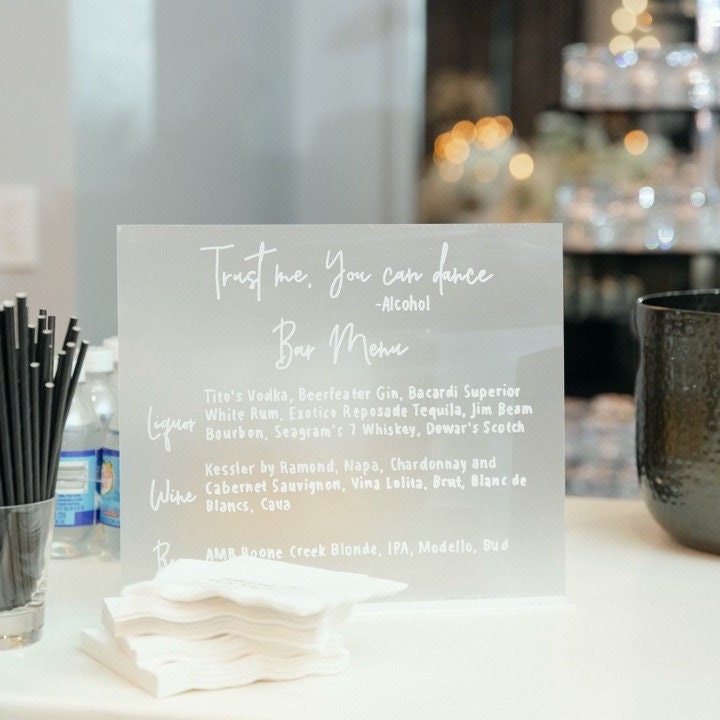 Trust me, You can dance
-Alcohol
Bar Menu
Liquor
Tito's Vodka, Beerfeater Gin, Bacardi Superior
White Rum, Exotico Reposade Tequila, Jim Beam
Bourbon, Seagram's 7 Whiskey, Dewar's Scotch
Wine
Kessler by Ramond, Napa, Chardonnay and
Cabernet Sauvignon, Vina Lolita, Brut, Blanc de
Blancs, Cava
AMB Boone Creek Blonde, IPA, Modello, Bud